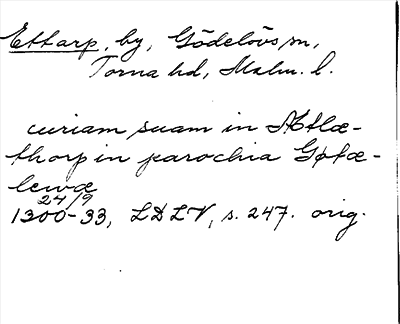 Ettarp, by, Gödelövs sn,
Torna hd, Malm. l.
curiam suam in Ætlæ-
thorp in parochia Gøtæ-
lewæ
24/9
1300-33, LDLV, s. 247. orig.